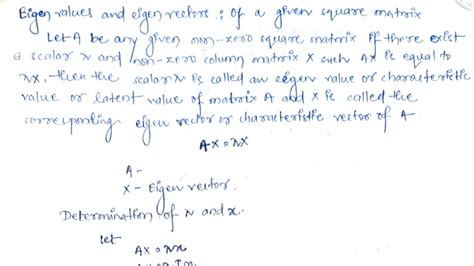 Eigen values and eigen vectors : Of a given square matrix
Let A be any given non-zero square matrix if there exist
a scalar λ and non-zero column matrix X such AX is equal to
λX, then the scalar λ is called an eigen value or characteristic
value or latent value of matrix A and X is called the
corresponding eigen vector or characteristic vector of A.
AX = λX
A -
X - Eigen vector.
Determination of λ and x.
let
AX = λx